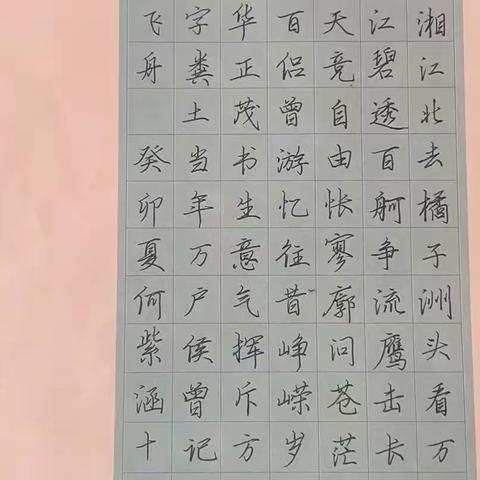 湘江北去橘子洲头看万
江碧透百舸争流鹰击长
天竞自由怅寥廓问苍茫
百侣曾游忆往昔峥嵘岁
华正茂书生意气挥斥方
字粪土当年万户侯曾记
飞舟 癸卯夏何紫涵十